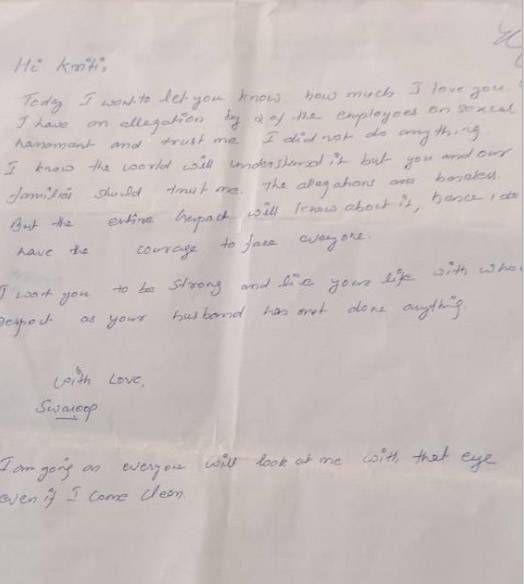 Hi Kriti,
Today I want to let you know how much I love you.
I have an allegation by 2 of the employees on sexual
harasmant and trust me I did not do anything.
I know the world will understand it but you and our
families should trust me. The allegations are baseless.
But the entire Genpact will know about it, hence I do
have the courage to face everyone.
I want you to be strong and live your life with whole
respect as your husband has not done anything.
With Love,
Swaroop
I am going as everyone will look at me with that eye
even if I come clean.